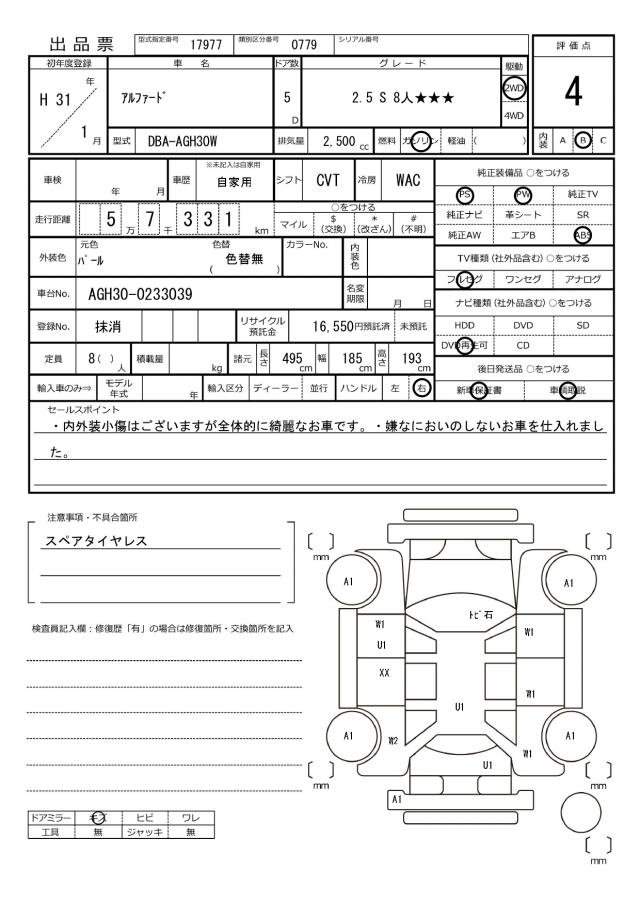 出品票
型式指定番号 17977 類別区分番号 0779 シリアル番号
評価点
初年度登録 車名 ドア数 グレード 駆動
H 31 年 ｱﾙﾌｧｰﾄﾞ 5 D 2.5 S 8人★★★ 2WD 4
1 月 4WD
型式 DBA-AGH30W 排気量 2,500 cc 燃料 ガソリン 軽油 ( ) 内装 A B C
車検 年 月 車歴 ※未記入は自家用 自家用 シフト CVT 冷房 WAC
走行距離 5 万 7 千 3 3 1 km
○をつける
マイル $ (交換) * (改ざん) # (不明)
外装色 元色 ﾊﾟｰﾙ 色替 色替無 ( ) カラーNo. 内装色
車台No. AGH30-0233039 名変期限 月 日
登録No. 抹消 リサイクル預託金 16,550円預託済 未預託
定員 8( ) 人 積載量 kg 諸元 長さ 495 cm 幅 185 cm 高さ 193 cm
輸入車のみ⇒ モデル年式 年 輸入区分 ディーラー 並行 ハンドル 左 右
純正装備品 ○をつける
PS PW 純正TV
純正ナビ 革シート SR
純正AW エアB ABS
TV種類 (社外品含む) ○をつける
フルセグ ワンセグ アナログ
ナビ種類 (社外品含む) ○をつける
HDD DVD SD
DVD再生可 CD
後日発送品 ○をつける
新車保証書 車輌取説
セールスポイント
・内外装小傷はございますが全体的に綺麗なお車です。・嫌なにおいのしないお車を仕入れまし
た。
注意事項・不具合箇所
スペアタイヤレス
検査員記入欄：修復歴「有」の場合は修復箇所・交換箇所を記入
ドアミラー キズ ヒビ ワレ
工具 無 ジャッキ 無
mm
mm
A1
A1
ﾄﾋﾞ石
W1
W1
U1
XX
W1
U1
A1
W2
W1
A1
U1
A1
mm
mm
mm